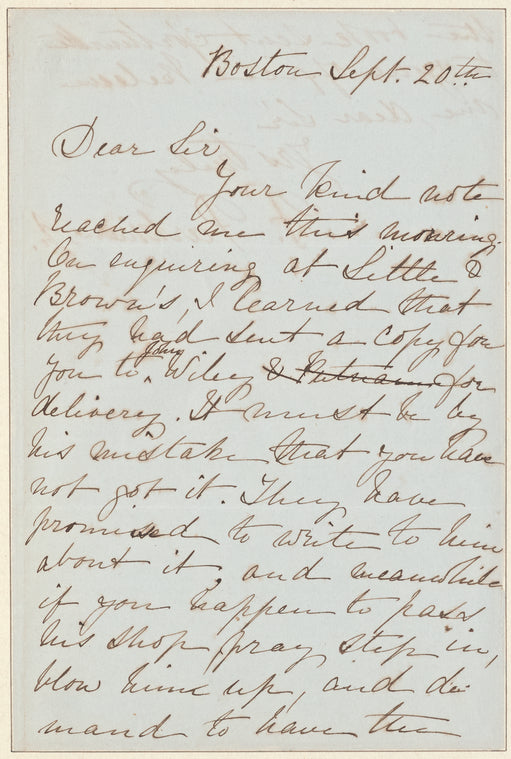 Boston Sept. 20th.
Dear Sir
Your kind note
reached me this morning.
On inquiring at Little &
Brown's, I learned that
they had sent a copy for
you to John Wiley & Putnam for
delivery. It must be by
his mistake that you have
not got it. They have
promised to write to him
about it, and meanwhile
if you happen to pass
his shop pray step in,
blow him up, and de-
mand to have the